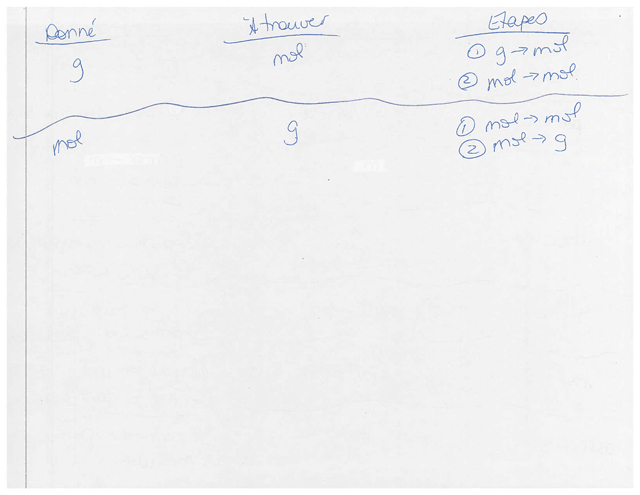 Donné À trouver Etapes
g mol ① g → mol
② mol → mol
mol g ① mol → mol
② mol → g